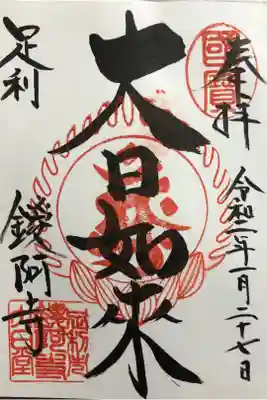 國寶
奉拝
令和二年一月二十七日
大日如来
足利
鑁阿寺